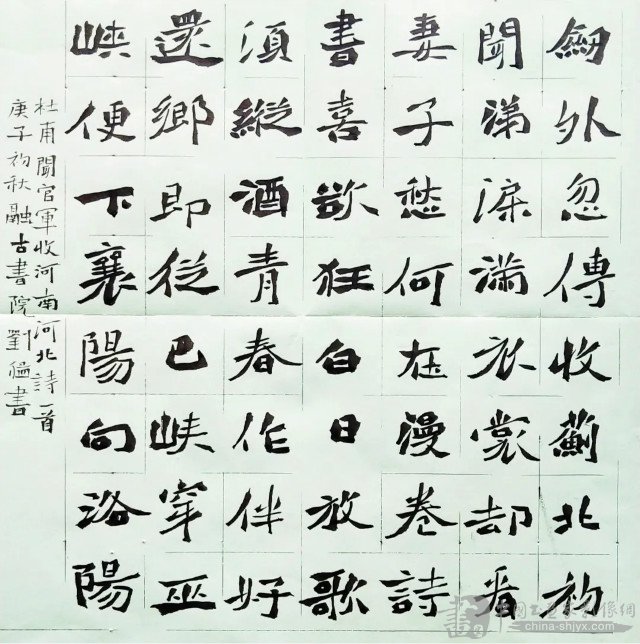 劍外忽傳收薊北初
聞涕淚滿衣裳却看
妻子愁何在漫卷詩
書喜欲狂白日放歌
須縱酒青春作伴好
還鄉即從巴峽穿巫
峽便下襄陽向洛陽
杜甫聞官軍收河南河北詩一首
庚子初秋融古書院劉書
china-shjyx.com